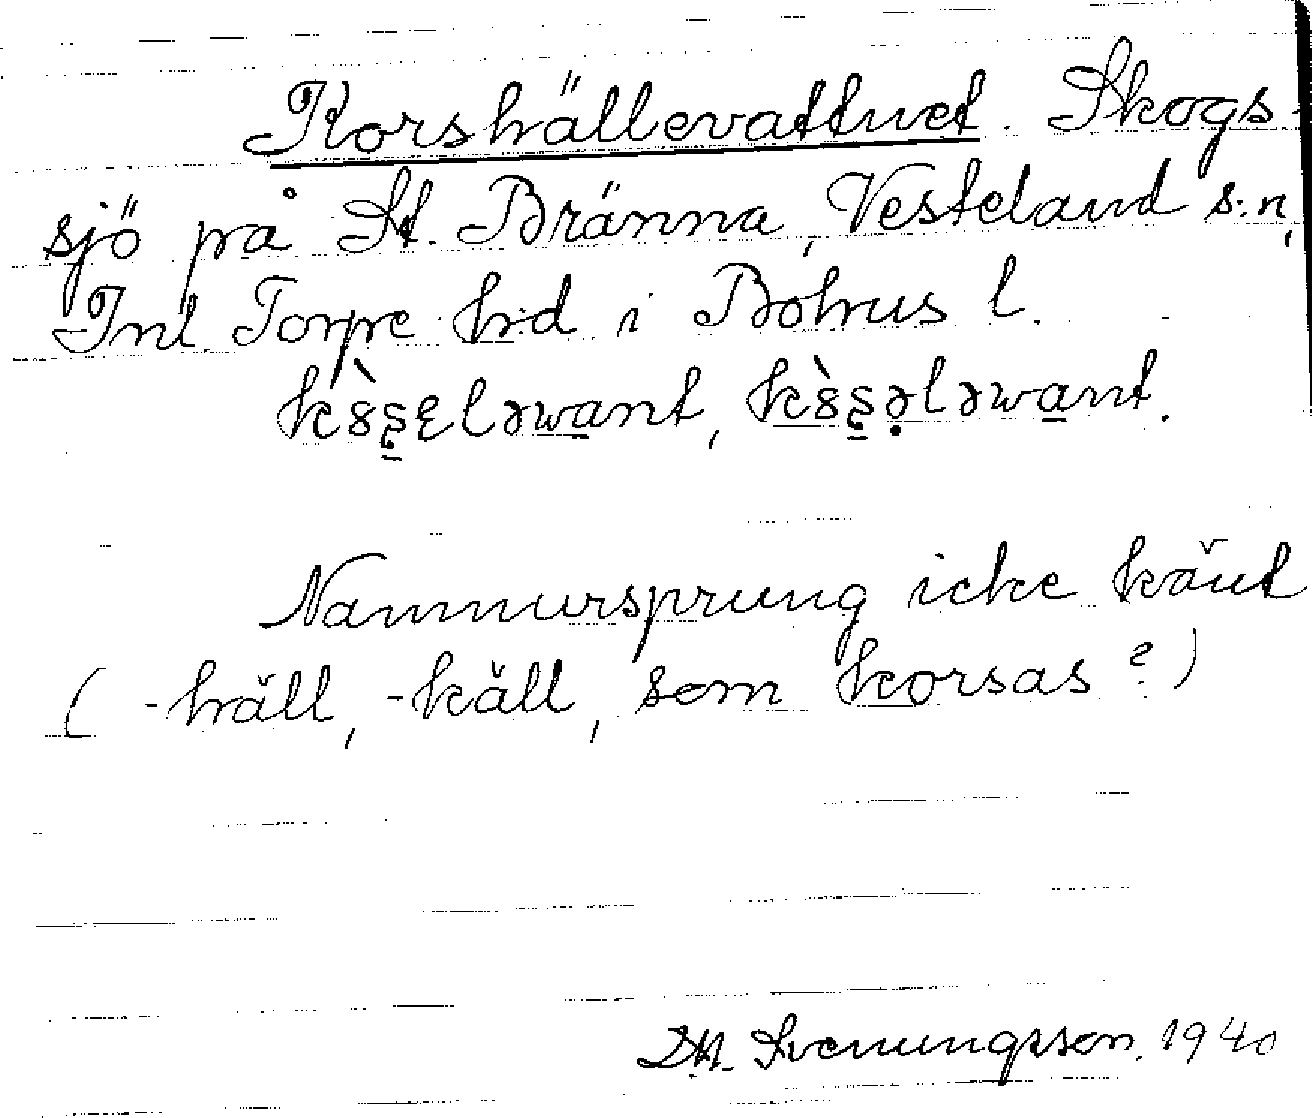 Korshällevattnet. Skogs-
sjö på St. Bränna, Vesteland s:n,
Inl. Torpe hrd i Bohus l.
kὸ̀ʂɛləwant, kὸ̀ʂə̣ləwant.
Namnursprung icke känt
(-häll, -käll, som korsas?)
D.H. Svenungsson. 1940